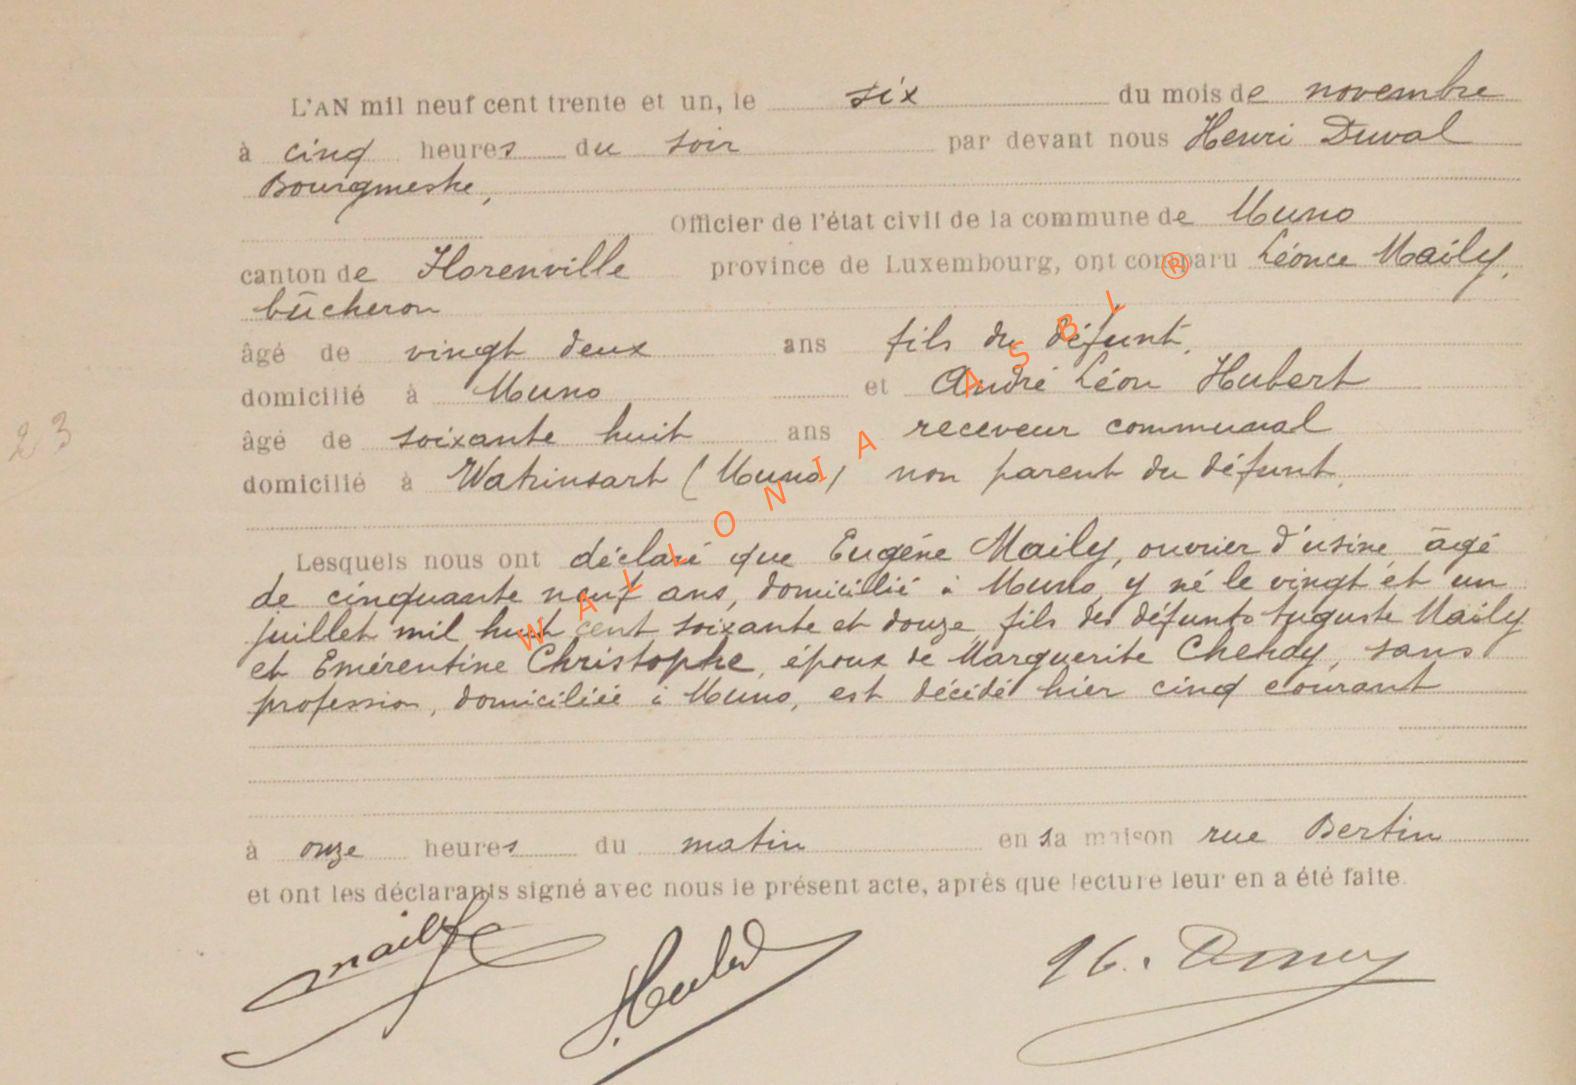 L'AN mil neuf cent trente et un, le six du mois de novembre
à cinq heures du soir par devant nous Henri Duval
Bourgmestre,
Officier de l'état civil de la commune de Muno
canton de Florenville province de Luxembourg, ont comparu Léonce Maily,
bûcheron
âgé de vingt deux ans fils du défunt,
domicilié à Muno et André Léon Hubert
âgé de soixante huit ans receveur communal
domicilié à Watrinsart (Muno) non parent du défunt,
23
Lesquels nous ont déclaré que Eugéne Maily, ouvrier d'usine, âgé
de cinquante neuf ans, domicilié à Muno, y né le vingt et un
juillet mil huit cent soixante et douze, fils des défunts Auguste Maily
et Emérentine Christophe, époux de Marguerite Chehdy, sans
profession, domiciliée à Muno, est décédé hier cinq courant
à onze heures du matin en sa maison rue Bertin
et ont les déclarants signé avec nous le présent acte, après que lecture leur en a été faite.
Maily Hubert H. Duval
WALLONIA ASBL ®